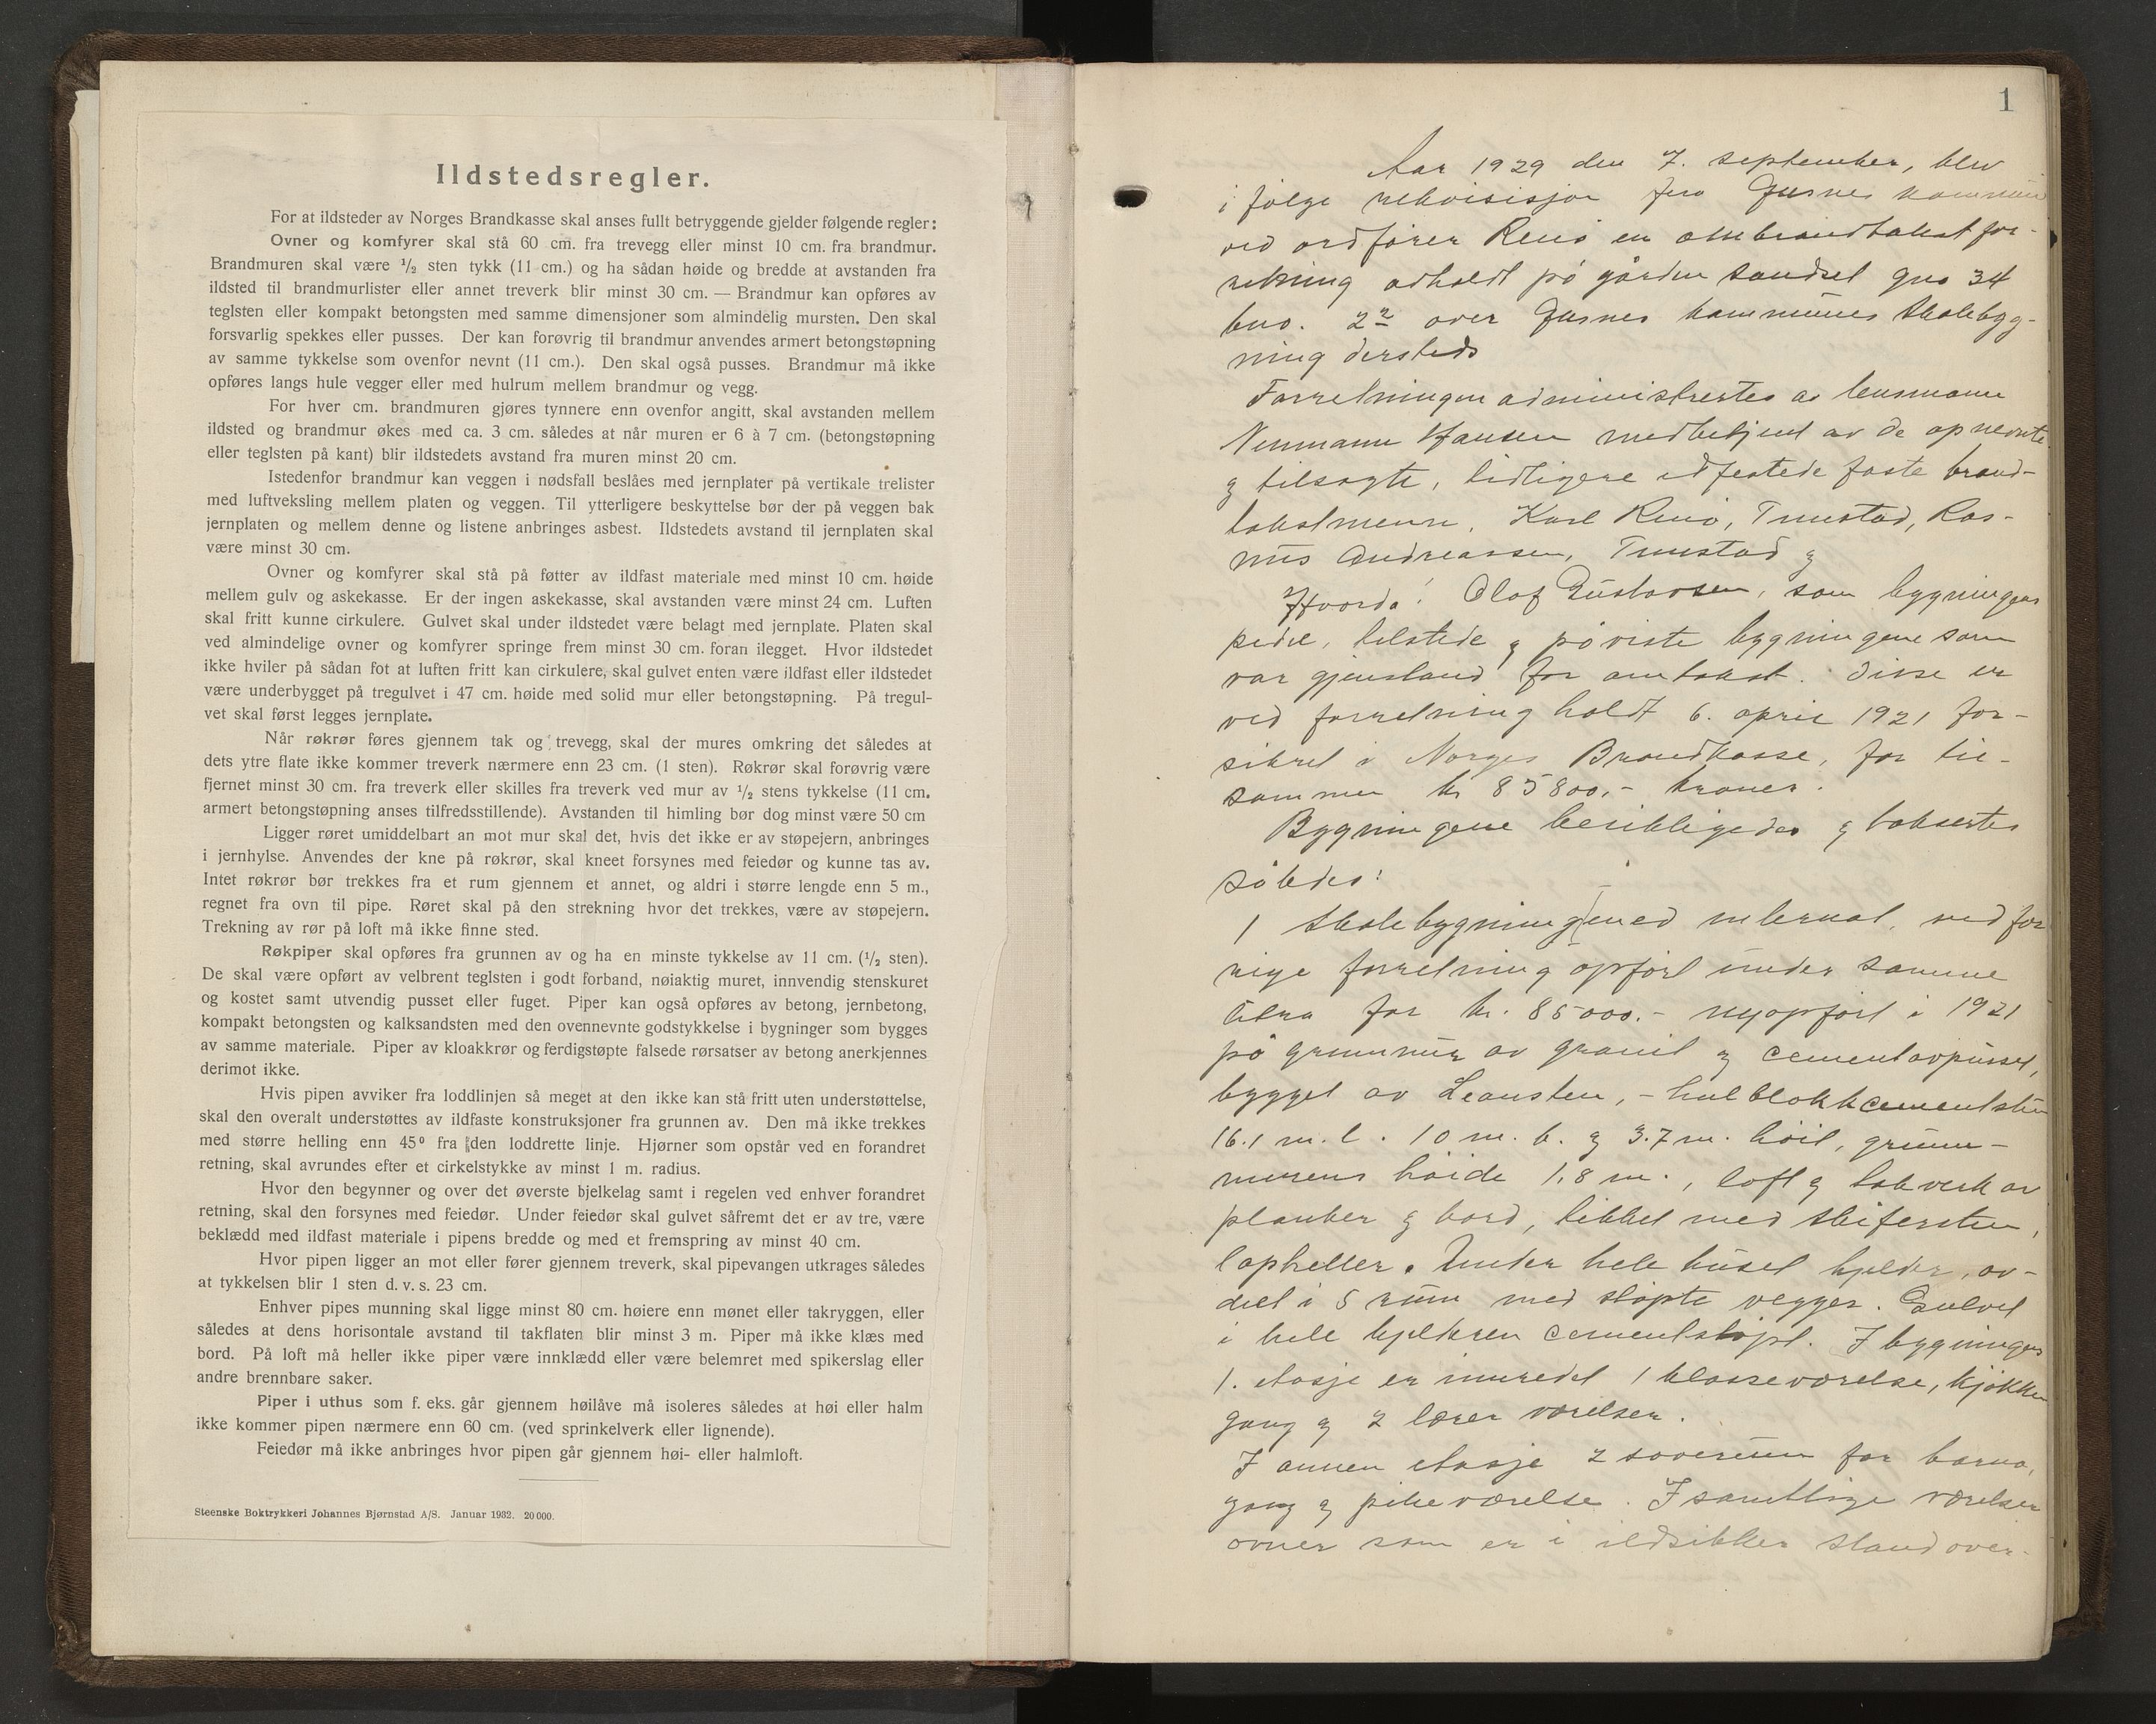 Ildstedsregler.
For at ildsteder av Norges Brandkasse skal anses fullt betryggende gjelder følgende regler:
Ovner og komfyrer skal stå 60 cm. fra trevegg eller minst 10 cm. fra brandmur.
Brandmuren skal være 1/2 sten tykk (11 cm.) og ha sådan høide og bredde at avstanden fra
ildsted til brandmurlister eller annet treverk blir minst 30 cm. — Brandmur kan opføres av
teglsten eller kompakt betongsten med samme dimensjoner som almindelig mursten. Den skal
forsvarlig spekkes eller pusses. Der kan forøvrig til brandmur anvendes armert betongstøpning
av samme tykkelse som ovenfor nevnt (11 cm.). Den skal også pusses. Brandmur må ikke
opføres langs hule vegger eller med hulrum mellem brandmur og vegg.
For hver cm. brandmuren gjøres tynnere enn ovenfor angitt, skal avstanden mellem
ildsted og brandmur økes med ca. 3 cm. således at når muren er 6 à 7 cm. (betongstøpning
eller teglsten på kant) blir ildstedets avstand fra muren minst 20 cm.
Istedenfor brandmur kan veggen i nødsfall beslåes med jernplater på vertikale trelister
med luftveksling mellem platen og veggen. Til ytterligere beskyttelse bør der på veggen bak
jernplaten og mellem denne og listene anbringes asbest. Ildstedets avstand til jernplaten skal
være minst 30 cm.
Ovner og komfyrer skal stå på føtter av ildfast materiale med minst 10 cm. høide
mellem gulv og askekasse. Er der ingen askekasse, skal avstanden være minst 24 cm. Luften
skal fritt kunne cirkulere. Gulvet skal under ildstedet være belagt med jernplate. Platen skal
ved almindelige ovner og komfyrer springe frem minst 30 cm. foran ilegget. Hvor ildstedet
ikke hviler på sådan fot at luften fritt kan cirkulere, skal gulvet enten være ildfast eller ildstedet
være underbygget på tregulvet i 47 cm. høide med solid mur eller betongstøpning. På tregul-
vet skal først legges jernplate.
Når røkrør føres gjennem tak og trevegg, skal der mures omkring det således at
dets ytre flate ikke kommer treverk nærmere enn 23 cm. (1 sten). Røkrør skal forøvrig være
fjernet minst 30 cm. fra treverk eller skilles fra treverk ved mur av 1/2 stens tykkelse (11 cm.
armert betongstøpning anses tilfredsstillende). Avstanden til himling bør dog minst være 50 cm
Ligger røret umiddelbart an mot mur skal det, hvis det ikke er av støpejern, anbringes
i jernhylse. Anvendes der kne på røkrør, skal kneet forsynes med feiedør og kunne tas av.
Intet røkrør bør trekkes fra et rum gjennem et annet, og aldri i større lengde enn 5 m.,
regnet fra ovn til pipe. Røret skal på den strekning hvor det trekkes, være av støpejern.
Trekning av rør på loft må ikke finne sted.
Røkpiper skal opføres fra grunnen av og ha en minste tykkelse av 11 cm. (1/2 sten).
De skal være opført av velbrent teglsten i godt forband, nøiaktig muret, innvendig stenskuret
og kostet samt utvendig pusset eller fuget. Piper kan også opføres av betong, jernbetong,
kompakt betongsten og kalksandsten med den ovennevnte godstykkelse i bygninger som bygges
av samme materiale. Piper av kloakkrør og ferdigstøpte falsede rørsatser av betong anerkjennes
derimot ikke.
Hvis pipen avviker fra loddlinjen så meget at den ikke kan stå fritt uten understøttelse,
skal den overalt understøttes av ildfaste konstruksjoner fra grunnen av. Den må ikke trekkes
med større helling enn 45° fra den loddrette linje. Hjørner som opstår ved en forandret
retning, skal avrundes efter et cirkelstykke av minst 1 m. radius.
Hvor den begynner og over det øverste bjelkelag samt i regelen ved enhver forandret
retning, skal den forsynes med feiedør. Under feiedør skal gulvet såfremt det er av tre, være
beklædd med ildfast materiale i pipens bredde og med et fremspring av minst 40 cm.
Hvor pipen ligger an mot eller fører gjennem treverk, skal pipevangen utkrages således
at tykkelsen blir 1 sten d. v. s. 23 cm.
Enhver pipes munning skal ligge minst 80 cm. høiere enn mønet eller takryggen, eller
således at dens horisontale avstand til takflaten blir minst 3 m. Piper må ikke klæs med
bord. På loft må heller ikke piper være innklædd eller være belemret med spikerslag eller
andre brennbare saker.
Piper i uthus som f. eks. går gjennem høilåve må isoleres således at høi eller halm
ikke kommer pipen nærmere enn 60 cm. (ved sprinkelverk eller lignende).
Feiedør må ikke anbringes hvor pipen går gjennem høi- eller halmloft.
Steenske Boktrykkeri Johannes Bjørnstad A/S. Januar 1932. 20 000.
1
Aar 1929 den 7. september, blev
i følge rekvisisjon fra Gjesnes kommune
ved ordfører Renø en ombrandtakst for-
retning avholdt på gården Sandsel gno 34
bno. 2 over Gjesnes kommunes Skolebyg-
ning dersteds
Forretningen administrertes av lensmann
Neumann Hansen medbetjent av de opnevnte
og tilsagte, tidligere edfestede faste brand-
takstmenn, Karl Renø, Tunstad, Ras-
mus Andreassen, Tunstad og
Hvorda! Olaf Gustavsen, som bygningens
pedel, tilstede og påviste bygningene som
var gjenstand for omtakst. Disse er
ved forretning holdt 6. april 1921 for-
sikret i Norges Brandkasse, for til-
sammen kr 85800,- kroner.
Bygningene besiktigedes og taksertes
således:
1 Skolebygning med internat, ved for
rige forretning opført under samme
litra for kr. 85000.- nyopført i 1921
på grunnmur av granit og cementavpusset,
bygget av Leansten, - hulblokkcementsten
16.1 m. l. 10 m. b. og 3.7 m. høit, grunn-
murens høide 1,8 m., loft og takverk av
planker og bord, tekket med skifersten,
lapheller. Under hele huset kjelder, av-
delt i 5 rum med støpte vegger. Gulvet
i hele kjelderen cementstøpt. I bygningens
1. etasje er innredet 1 klasseværelse, kjøkken
gang og 2 lærer værelser.
I annen etasje 2 soverum for barna,
gang og pikeværelse. I samtlige værelser
ovner som er i ildsikker stand over-